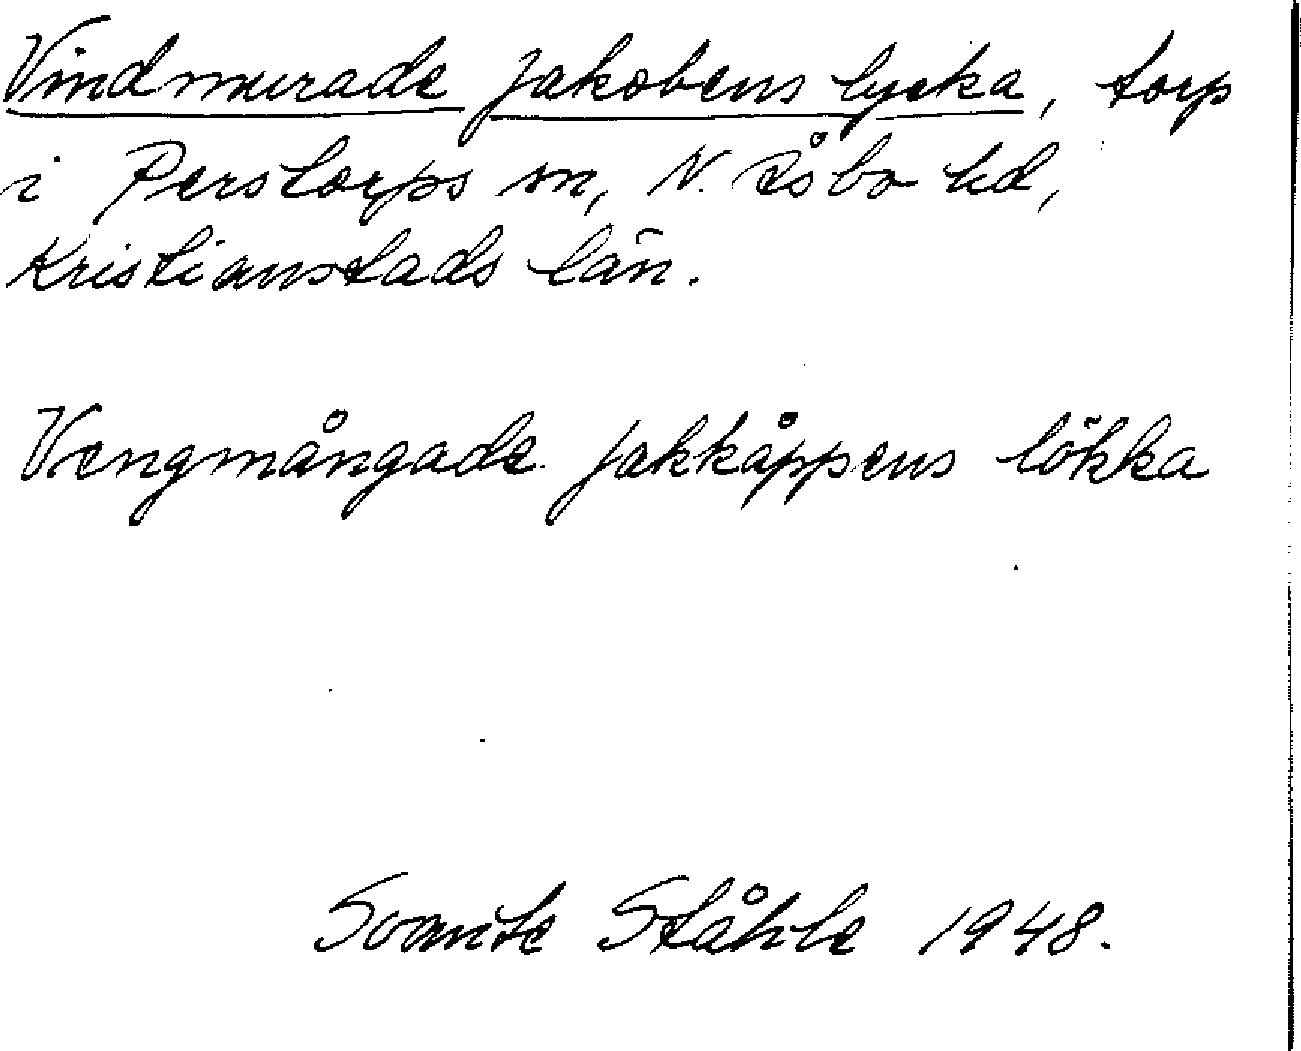 Vindmurade Jakobens lycka, torp
i Perstorps sn, N. Åsbo hd,
Kristianstads län.
Vengmångade Jakkåppens lökka
Svante Ståhle 1948.